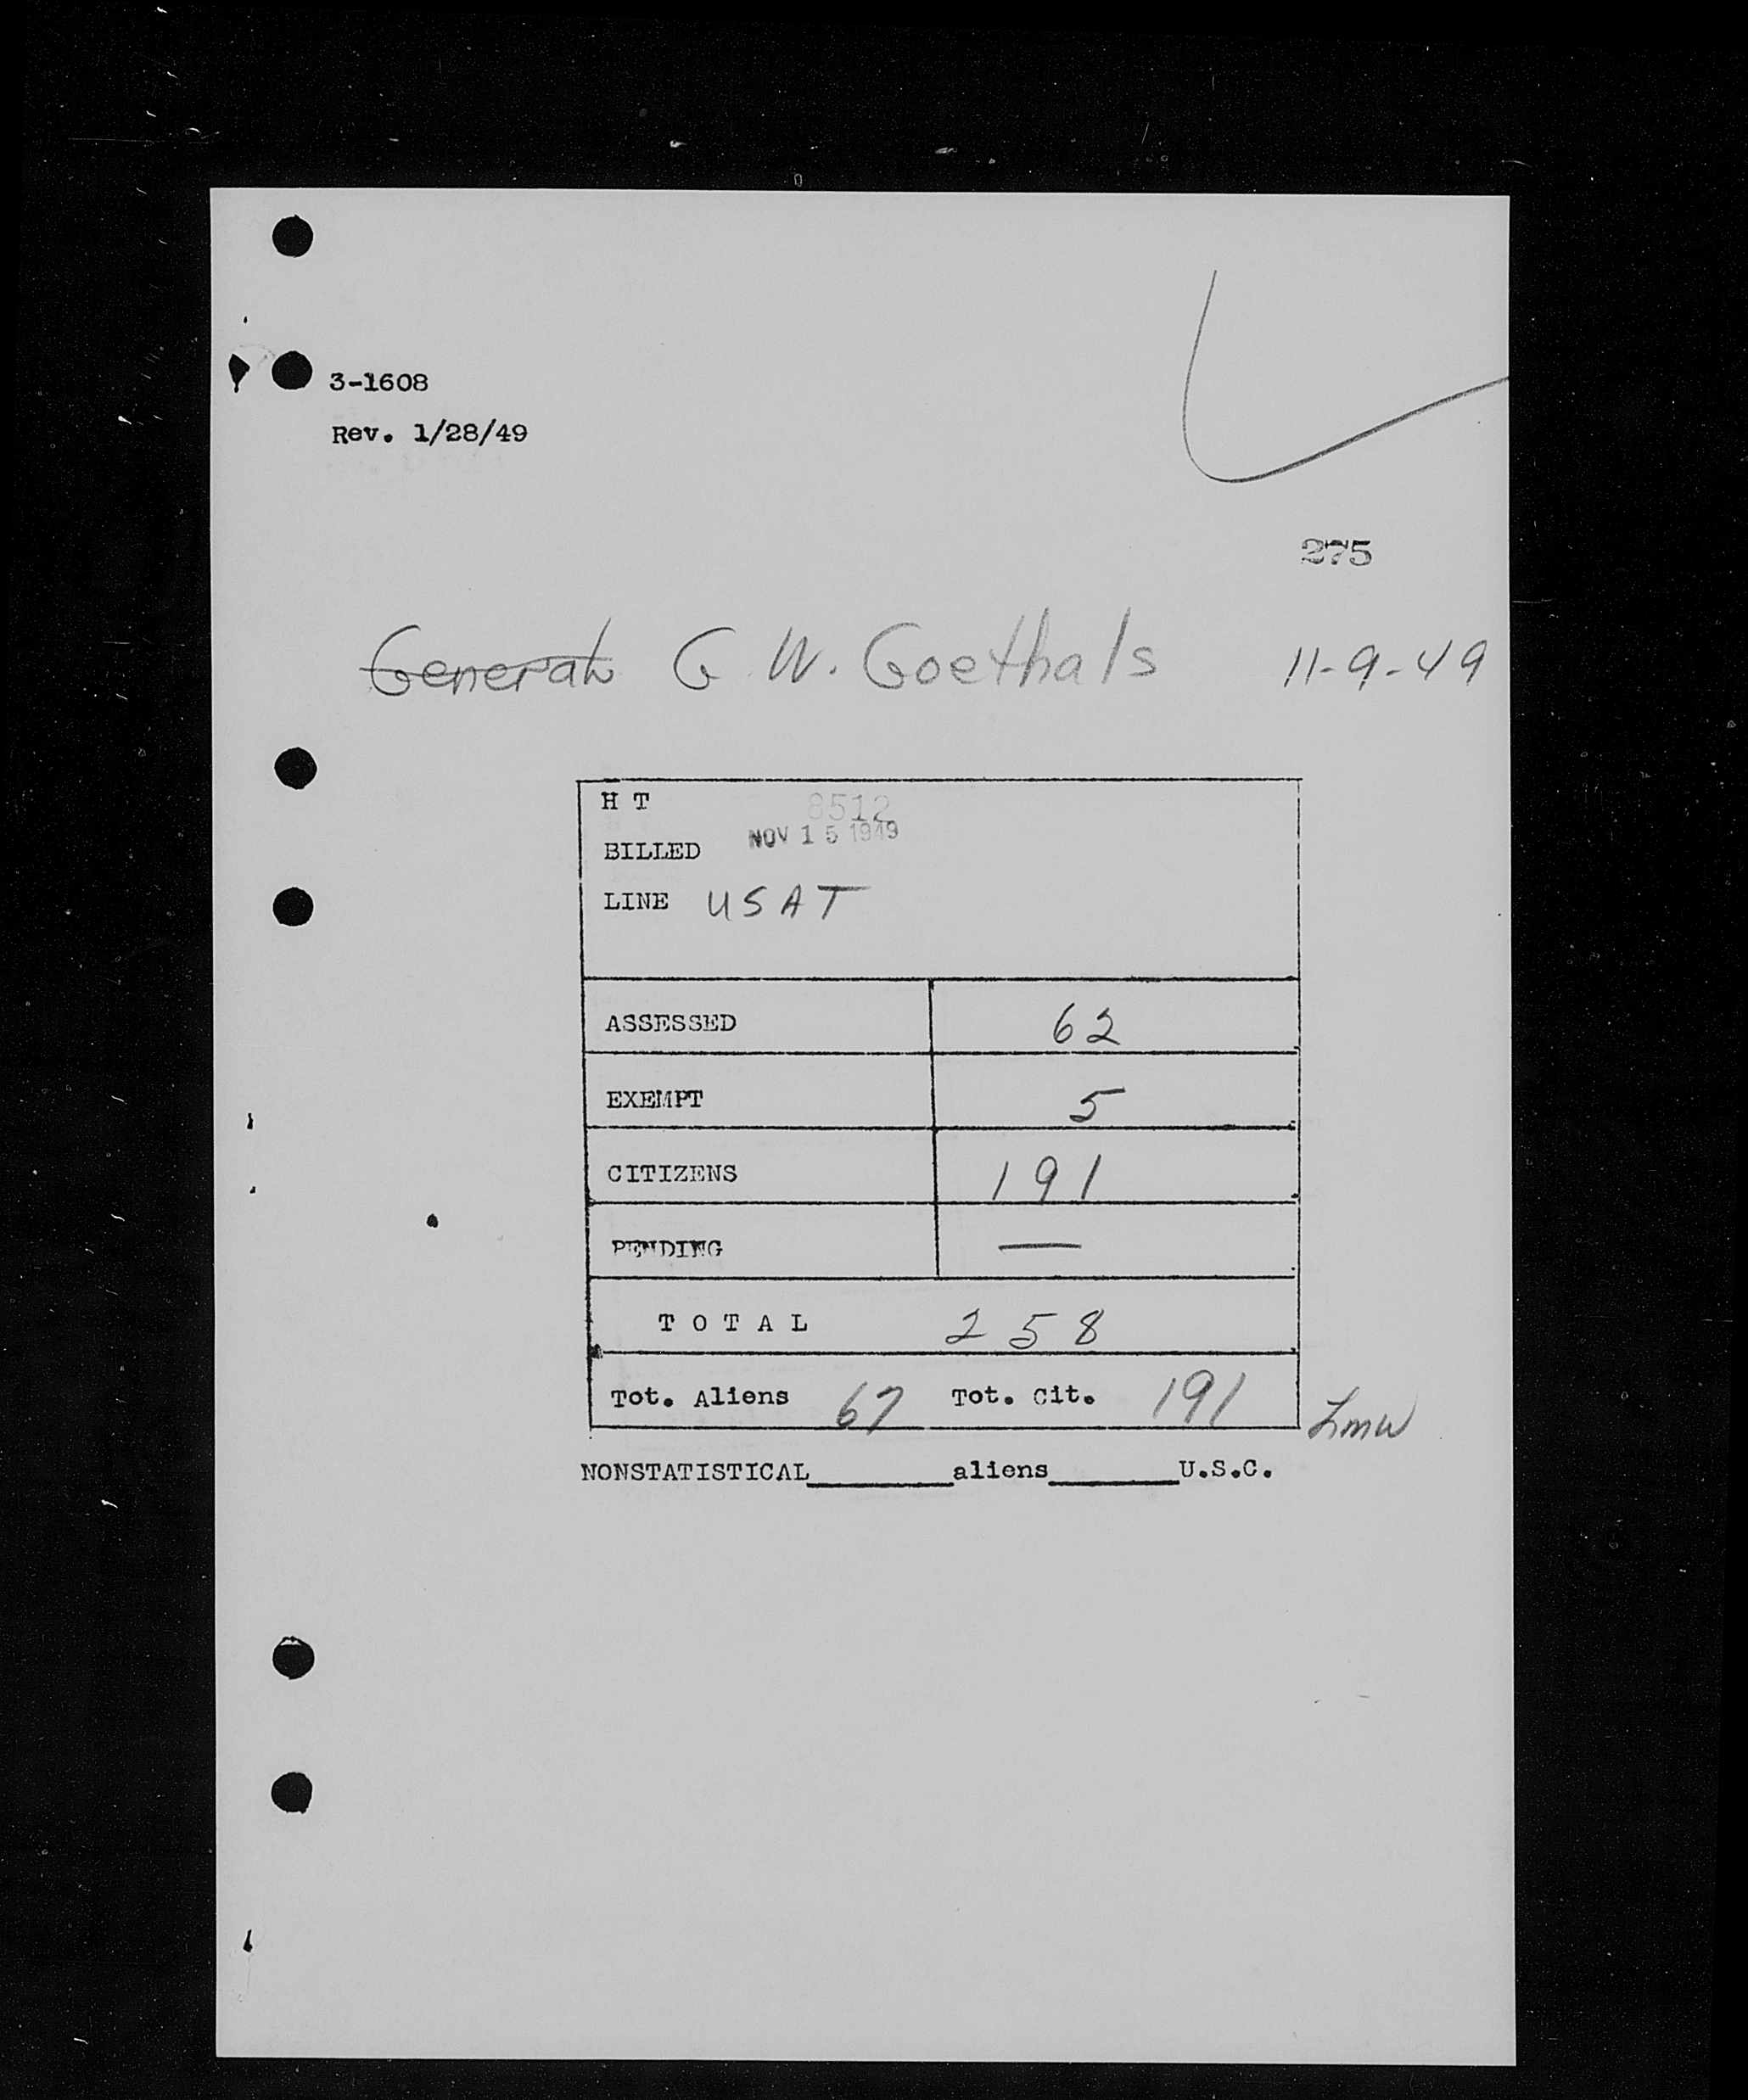 3-1608
Rev. 1/28/49
275
General G. W. Goethals 11-9-49
H T 8512
NOV 15 1949
BILLED
LINE USAT
ASSESSED 62
EXEMPT 5
CITIZENS 191
PENDING —
T O T A L 258
Tot. Aliens 67 Tot. Cit. 191 Lmw
NONSTATISTICAL________aliens_______U.S.C.